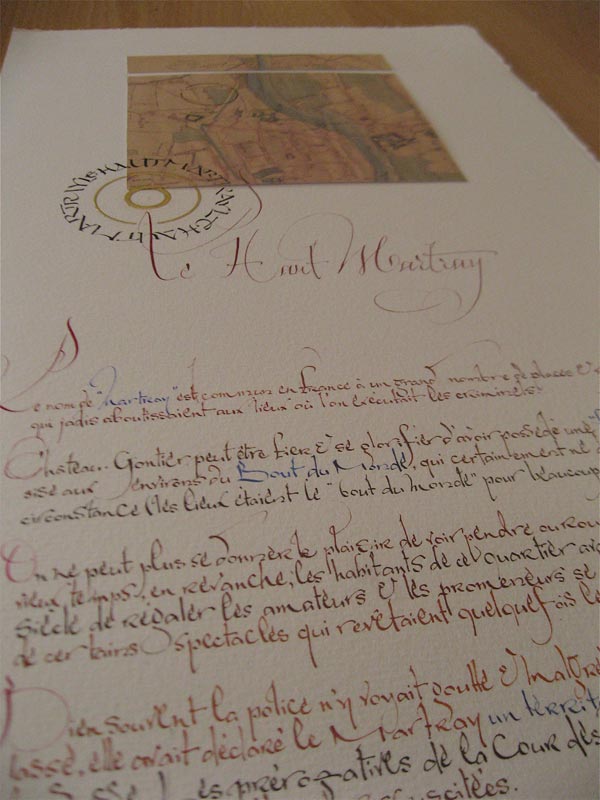 Le Haut Martray
Le nom de "Martray" est commun en France à un grand nombre de places &
qui jadis aboutissaient aux "lieux" où l'on exécutait les criminels.
Chateau-Gontier peut être fier & se glorifier d'avoir possédé une
sise aux environs du Bout du Monde, qui certainement ne
circonstance (les lieux étaient le "bout du monde" pour beaucoup
On ne peut plus se donner le plaisir de voir pendre ou rou
vieux temps, en revanche, les habitants de ce quartier
siècle de régaler les amateurs & les promeneurs se
de certains spectacles qui revêtaient quelquefois
Bien souvent la police n'y voyait goutte & malgré
lassé, elle avait déclaré le Martray un territ
les prérogatives de la Cour des
suscitées.